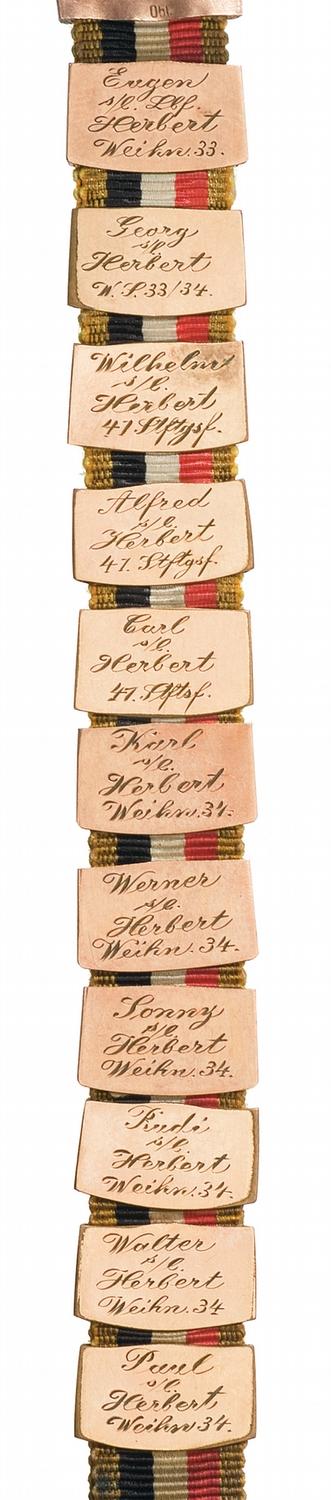 061
Eugen
s/l. Lbf.
Herbert
Weihn. 33.
Georg
s/l
Herbert
W.S. 33/34.
Wilhelm
s/l.
Herbert
47 Stftgsf.
Alfred
s/l.
Herbert
47. Stftgsf.
Carl
s/l.
Herbert
47. Stftsf.
Karl
s/l.
Herbert
Weihn. 34.
Werner
s/l.
Herbert
Weihn. 34.
Sonny
s/l.
Herbert
Weihn. 34.
Rudi
s/l.
Herbert
Weihn. 34.
Walter
s/l.
Herbert
Weihn. 34
Paul
s/l.
Herbert
Weihn. 34.